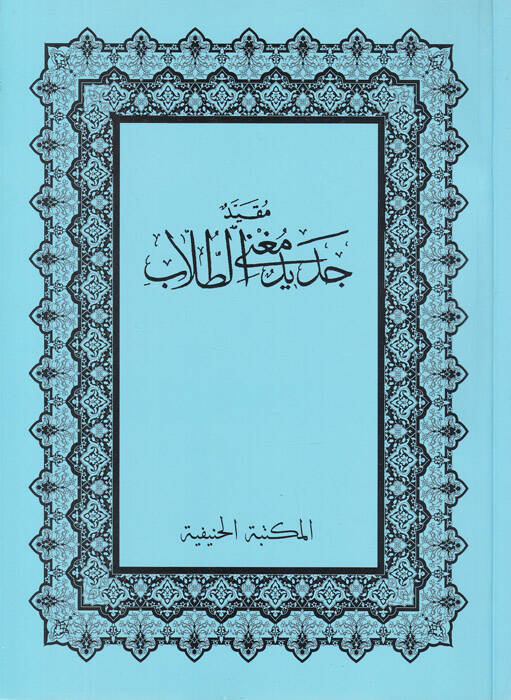 مُقَيَّدْ
جَدِيدْ مُغْنِي الطُّلَّاب
المكتبة الحنيفية